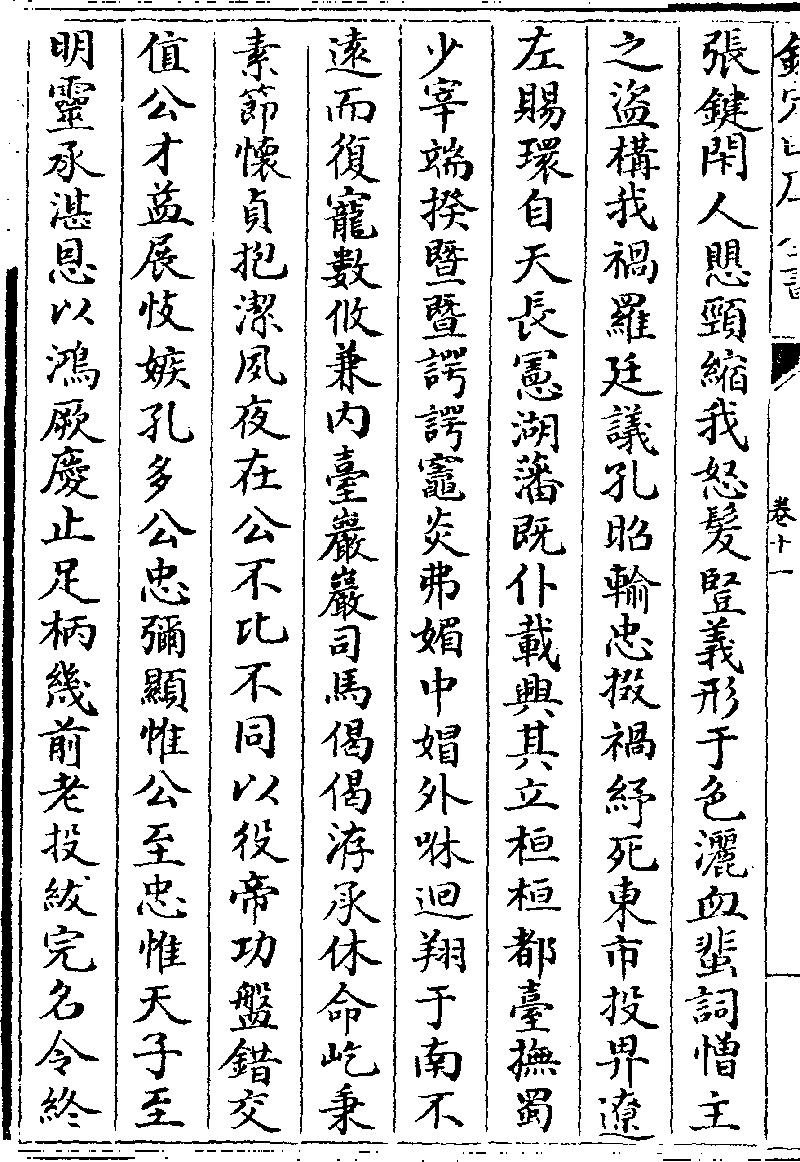 張鍵閑人愳頸縮我怒髮豎義形于色灑血蜚詞憎主
之盜構我禍羅廷議孔昭輸忠掇禍紓死東市投畀遼
左賜環自天長憲湖藩既仆載興其立桓桓都臺撫蜀
少宰端揆暨暨諤諤竈炎弗媚中媢外咻迴翔于南不
遠而復寵數攸兼内臺巖巖司馬偈偈洊承休命屹秉
素節懷貞抱潔夙夜在公不比不同以役帝功盤錯交
值公才益展忮嫉孔多公忠彌顯惟公至忠惟天子至
明靈承湛恩以鴻厥慶止足柄幾前老投紱完名令終
卷十一